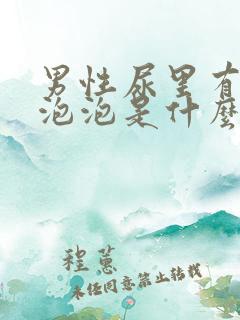 男性尿里有
泡泡是什么
程蕙
未经同意禁止转载